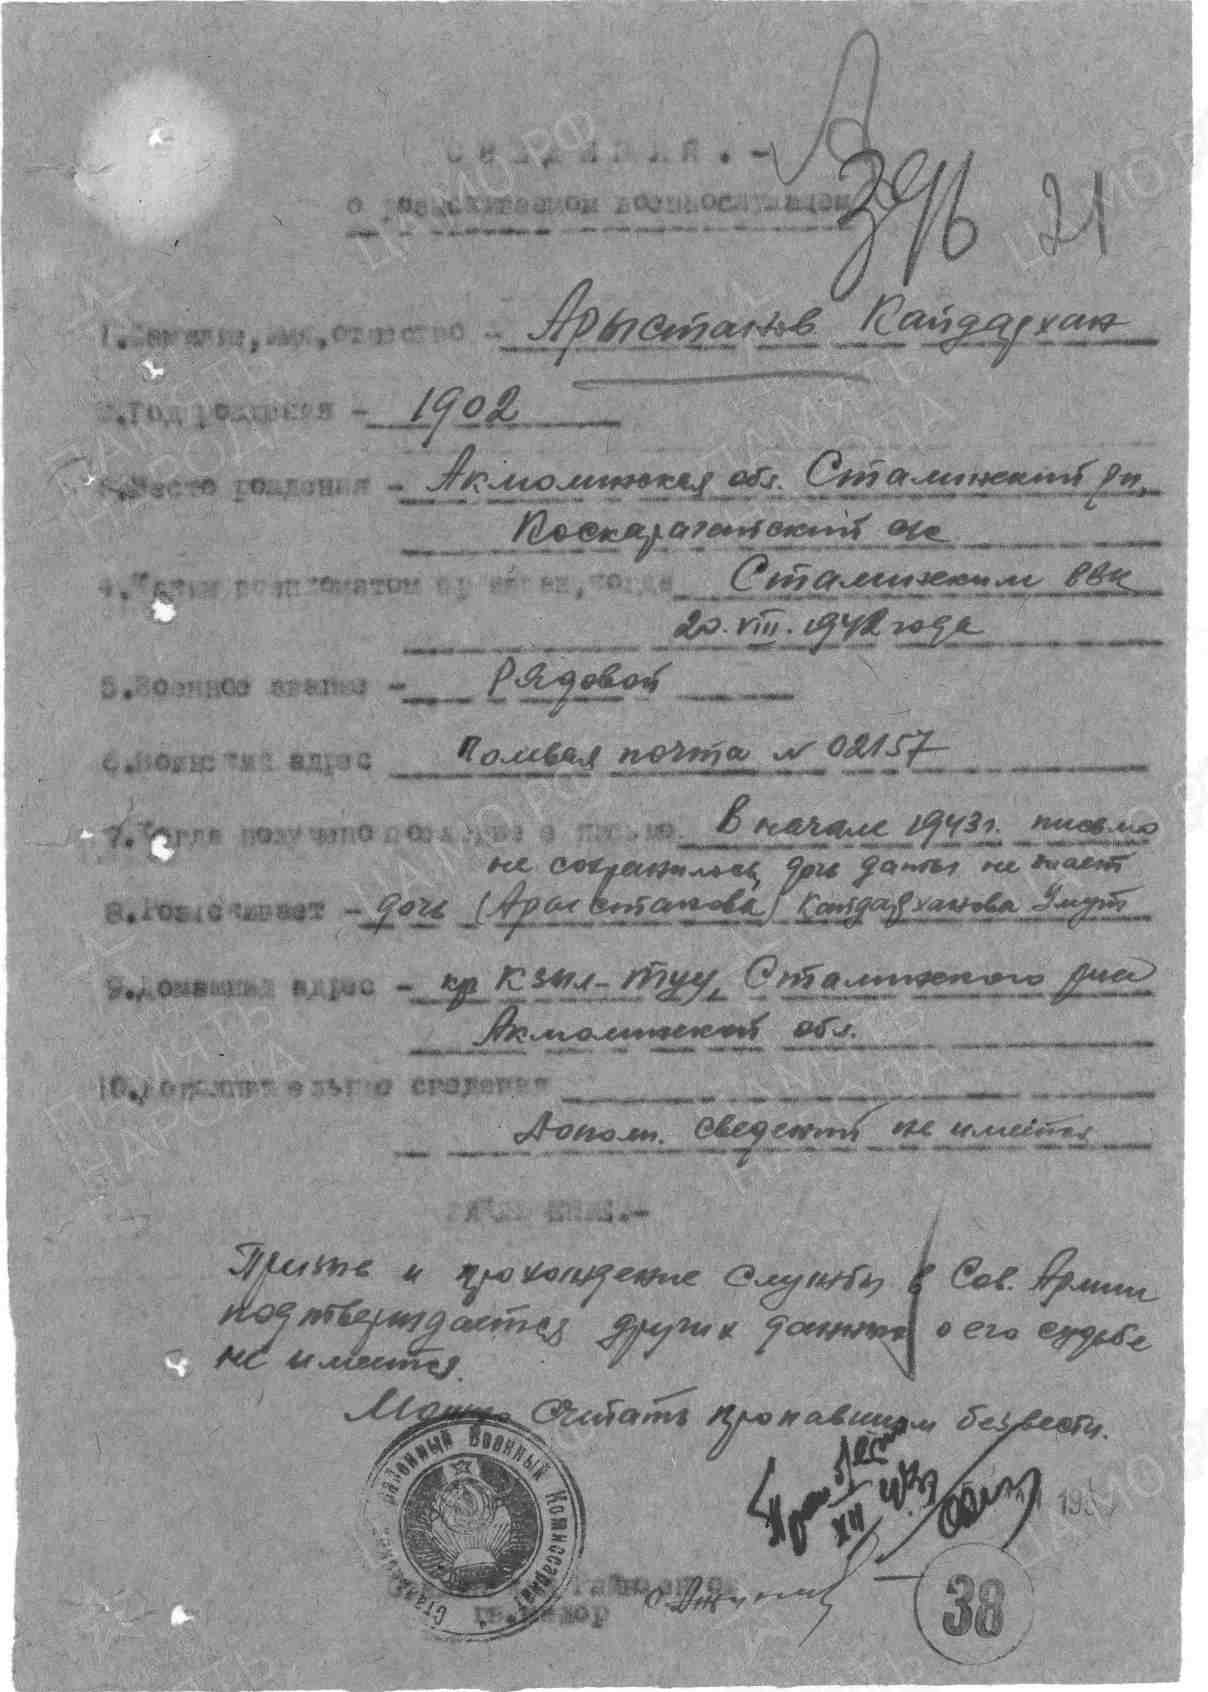 СВЕДЕНИЯ.-
о разыскиваемом военнослужащем
396 21
1.Фамилия, имя, отчество - Арыстанов Кайдархан
2.Год рождения - 1902
3.Место рождения - Акмолинская обл. Сталинский рн,
Коскарагайский с/с
4.Каким военкоматом призван, когда Сталинским РВК
20.VIII.1942 года
5.Военное звание - Рядовой
6.Воинский адрес Полевая почта № 02157
7.Когда получено последнее письмо В начале 1943г. письмо
не сохранилось, дочь даты не знает
8.Разыскивает - дочь (Арыстанова) Кайдарханова Умут
9.Домашний адрес - кр Кзил-Туу, Сталинского р-на
Акмолинской обл.
10.Дополнительные сведения
Дополн. сведений не имеется
ЗАКЛЮЧЕНИЕ.-
Призыв и прохождение службы в Сов. Армии
подтверждается других данных о его судьбе
не имеется.
Можно считать пропавшим без вести.
Районный Военный Комиссариат
XII
195
гв.майор
38
ЦАМО.РФ
ПАМЯТЬ НАРОДА